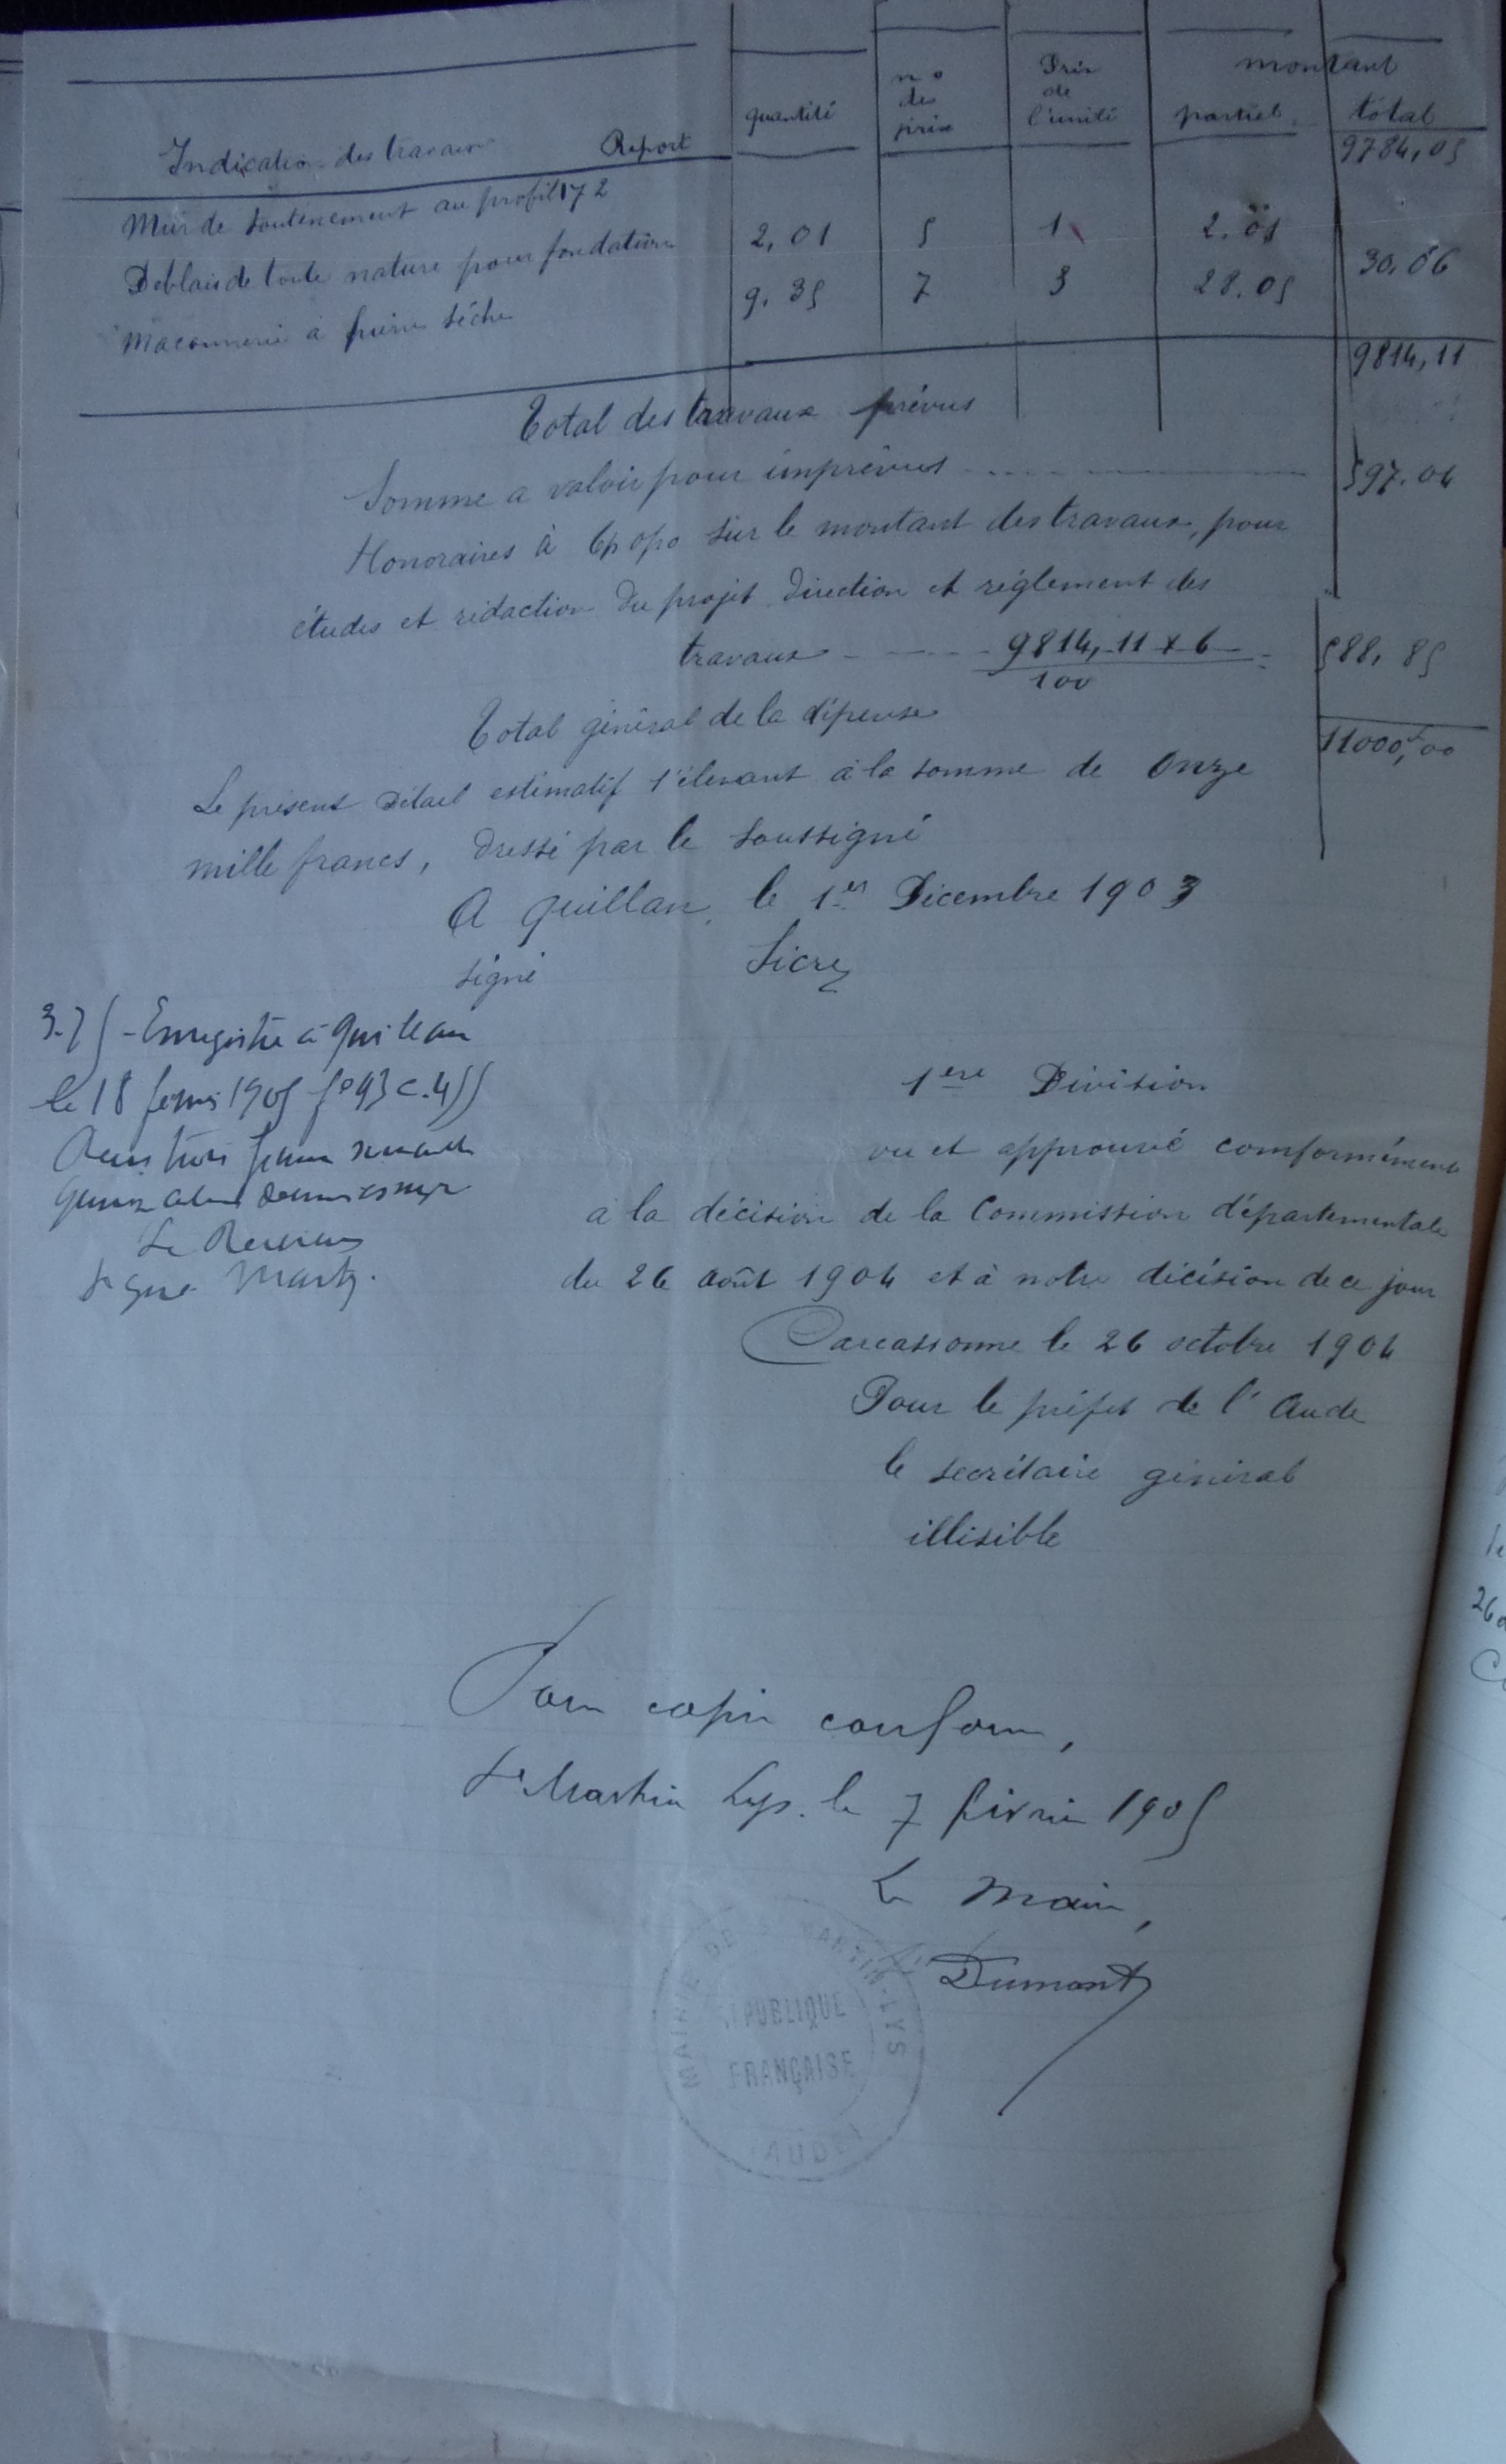 Indication des travaux Report quantité n° des prix Prix de l'unité montant partiel total
9784,05
Mur de soutenement au profil 172
Deblais de toute nature pour fondation 2,01 5 1 2.01
Maconnerie à pierre sèche 9.35 7 3 28.05 30.06
Total des travaux prévus 9814,11
Somme a valoir pour imprévus 597.04
Honoraires à 6 p o/o sur le montant des travaux, pour
études et rédaction du projet direction et réglement des
travaux 9814,11 x 6 = 588,85
100
Total général de la dépense 11000,00
Le présent détail estimatif s'élevant à la somme de onze
mille francs, dressé par le soussigné
A Quillan, le 1er Décembre 1903
signé Sicre
3.75 - Enregistré à Quillan
le 18 février 1905 f° 93 c. 4
Reçu trois francs
Le Receveur
signé Marty.
1ère Division
vu et approuvé comformément
à la décision de la Commission départementale
du 26 août 1904 et à notre décision de ce jour
Carcassonne le 26 octobre 1904
Pour le préfet de l'Aude
le secrétaire général
illisible
Pour copie conforme,
St Martin Lys. le 7 février 1905
Le Maire,
Dumont
MAIRIE DE ST MARTIN-LYS
RÉPUBLIQUE
FRANÇAISE
(AUDE)